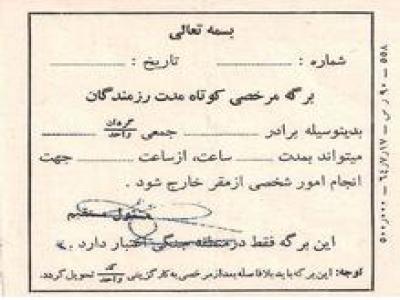 بسمه تعالی
شماره : ............ تاریخ : ............
برگه مرخصی کوتاه مدت رزمندگان
بدینوسیله برادر ............ جمعی گردان/واحد ............
میتواند بمدت ............ ساعت، از ساعت ............ جهت
انجام امور شخصی از مقر خارج شود .
مسئول مستقیم
این برگه فقط در منطقه جنگی اعتبار دارد .
توجه: این برگه باید بلافاصله بعد از مرخصی به کارگزینی گد/واحد تحویل گردد.
۵۵۸ — ۹۰ ر س — ۶۴/۷/۱۷ — ۵۰۰/۰۰۰